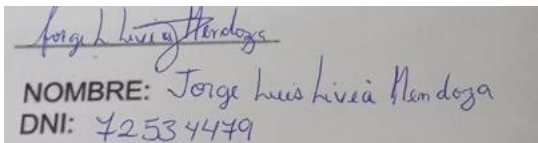 Jorge L Liveá Mendoza
NOMBRE: Jorge Luis Liveá Mendoza
DNI: 72534479